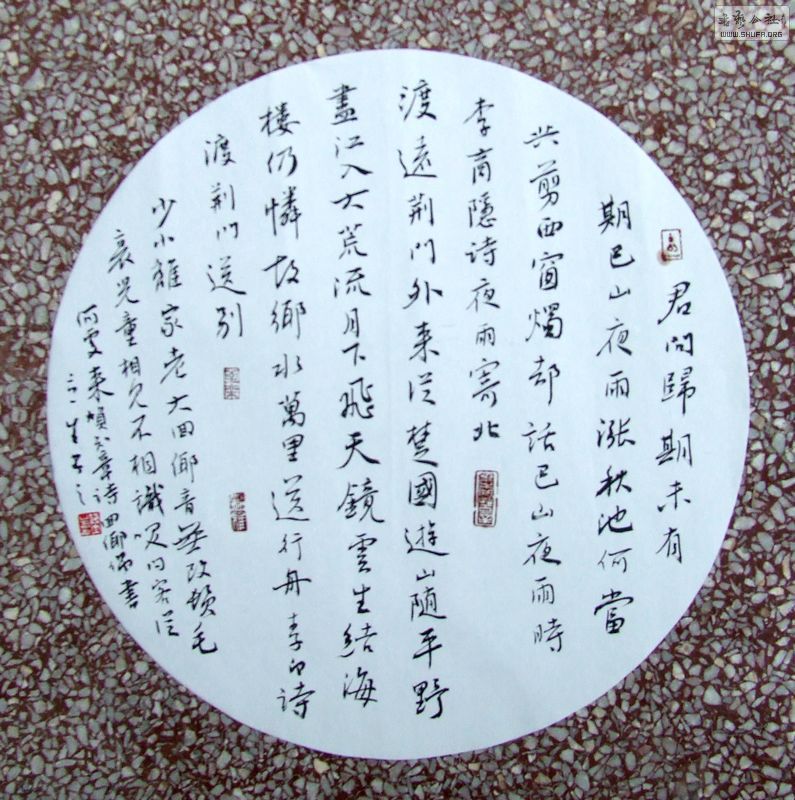 君问歸期未有
期巴山夜雨漲秋池何當
共剪西窗燭却話巴山夜雨時
李商隱诗夜雨寄北
渡遠荆门外来從楚國遊山随平野
盡江入大荒流月下飛天鏡雲生结海
楼仍憐故鄉水萬里送行舟李白诗
渡荆门送别
少小離家老大回鄉音無改鬓毛
衰兒童相见不相識笑问客從
何處来
诗回鄉偶書
書法公社
WWW.SHUFA.ORG